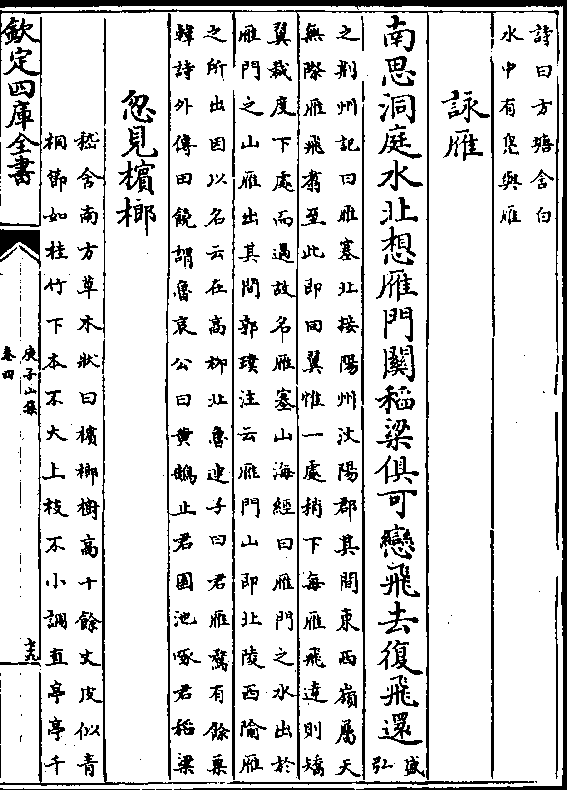 詩曰方塘含白
水中有鳬與雁
詠雁
南思洞庭水北想雁門關稻梁俱可戀飛去復飛還
盛
弘
之荆州記曰雁塞北接陽州汶陽郡其間東西嶺屬天
無際雁飛翥至此即回翼惟一處稍下每雁飛達則矯
翼裁度下處而過故名雁塞山海經曰雁門之水出於
雁門之山雁出其間郭璞注云雁門山即北陵西隃雁
之所出因以名云在高柳北魯連子曰君雁鶩有餘粟
韓詩外傳田饒謂魯哀公曰黄鵠止君園池啄君稻梁
忽見檳榔
嵇含南方草木狀曰檳榔樹高十餘丈皮似青
桐節如桂竹下本不大上枝不小調直亭亭千
欽定四庫全書
庾子山集
卷四